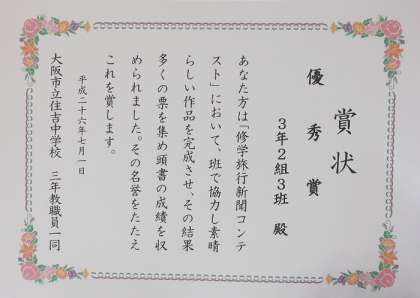 賞状
優秀賞
3年2組3班 殿
あなた方は「修学旅行新聞コンテ
スト」において、班で協力し素晴
らしい作品を完成させ、その結果
多くの票を集め頭書の成績を収
められました。その名誉をたたえ
これを賞します。
平成二十六年七月一日
大阪市立住吉中学校 三年教職員一同